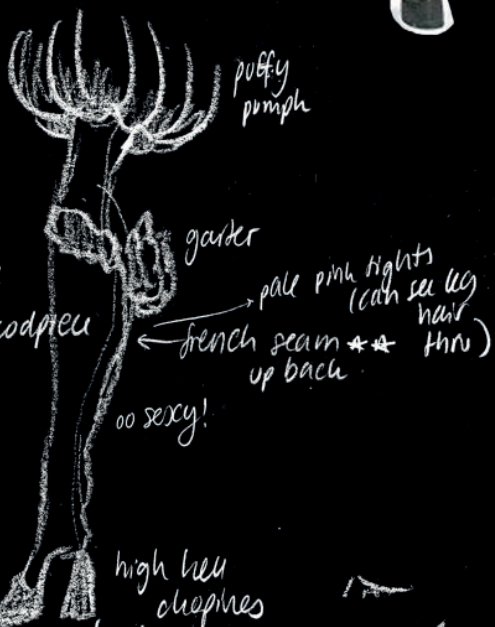 puffy
pumph
garter
pale pink tights
(can see leg
hair
thru)
codpiece
french seam **
up back
oo sexy!
high heel
chopines